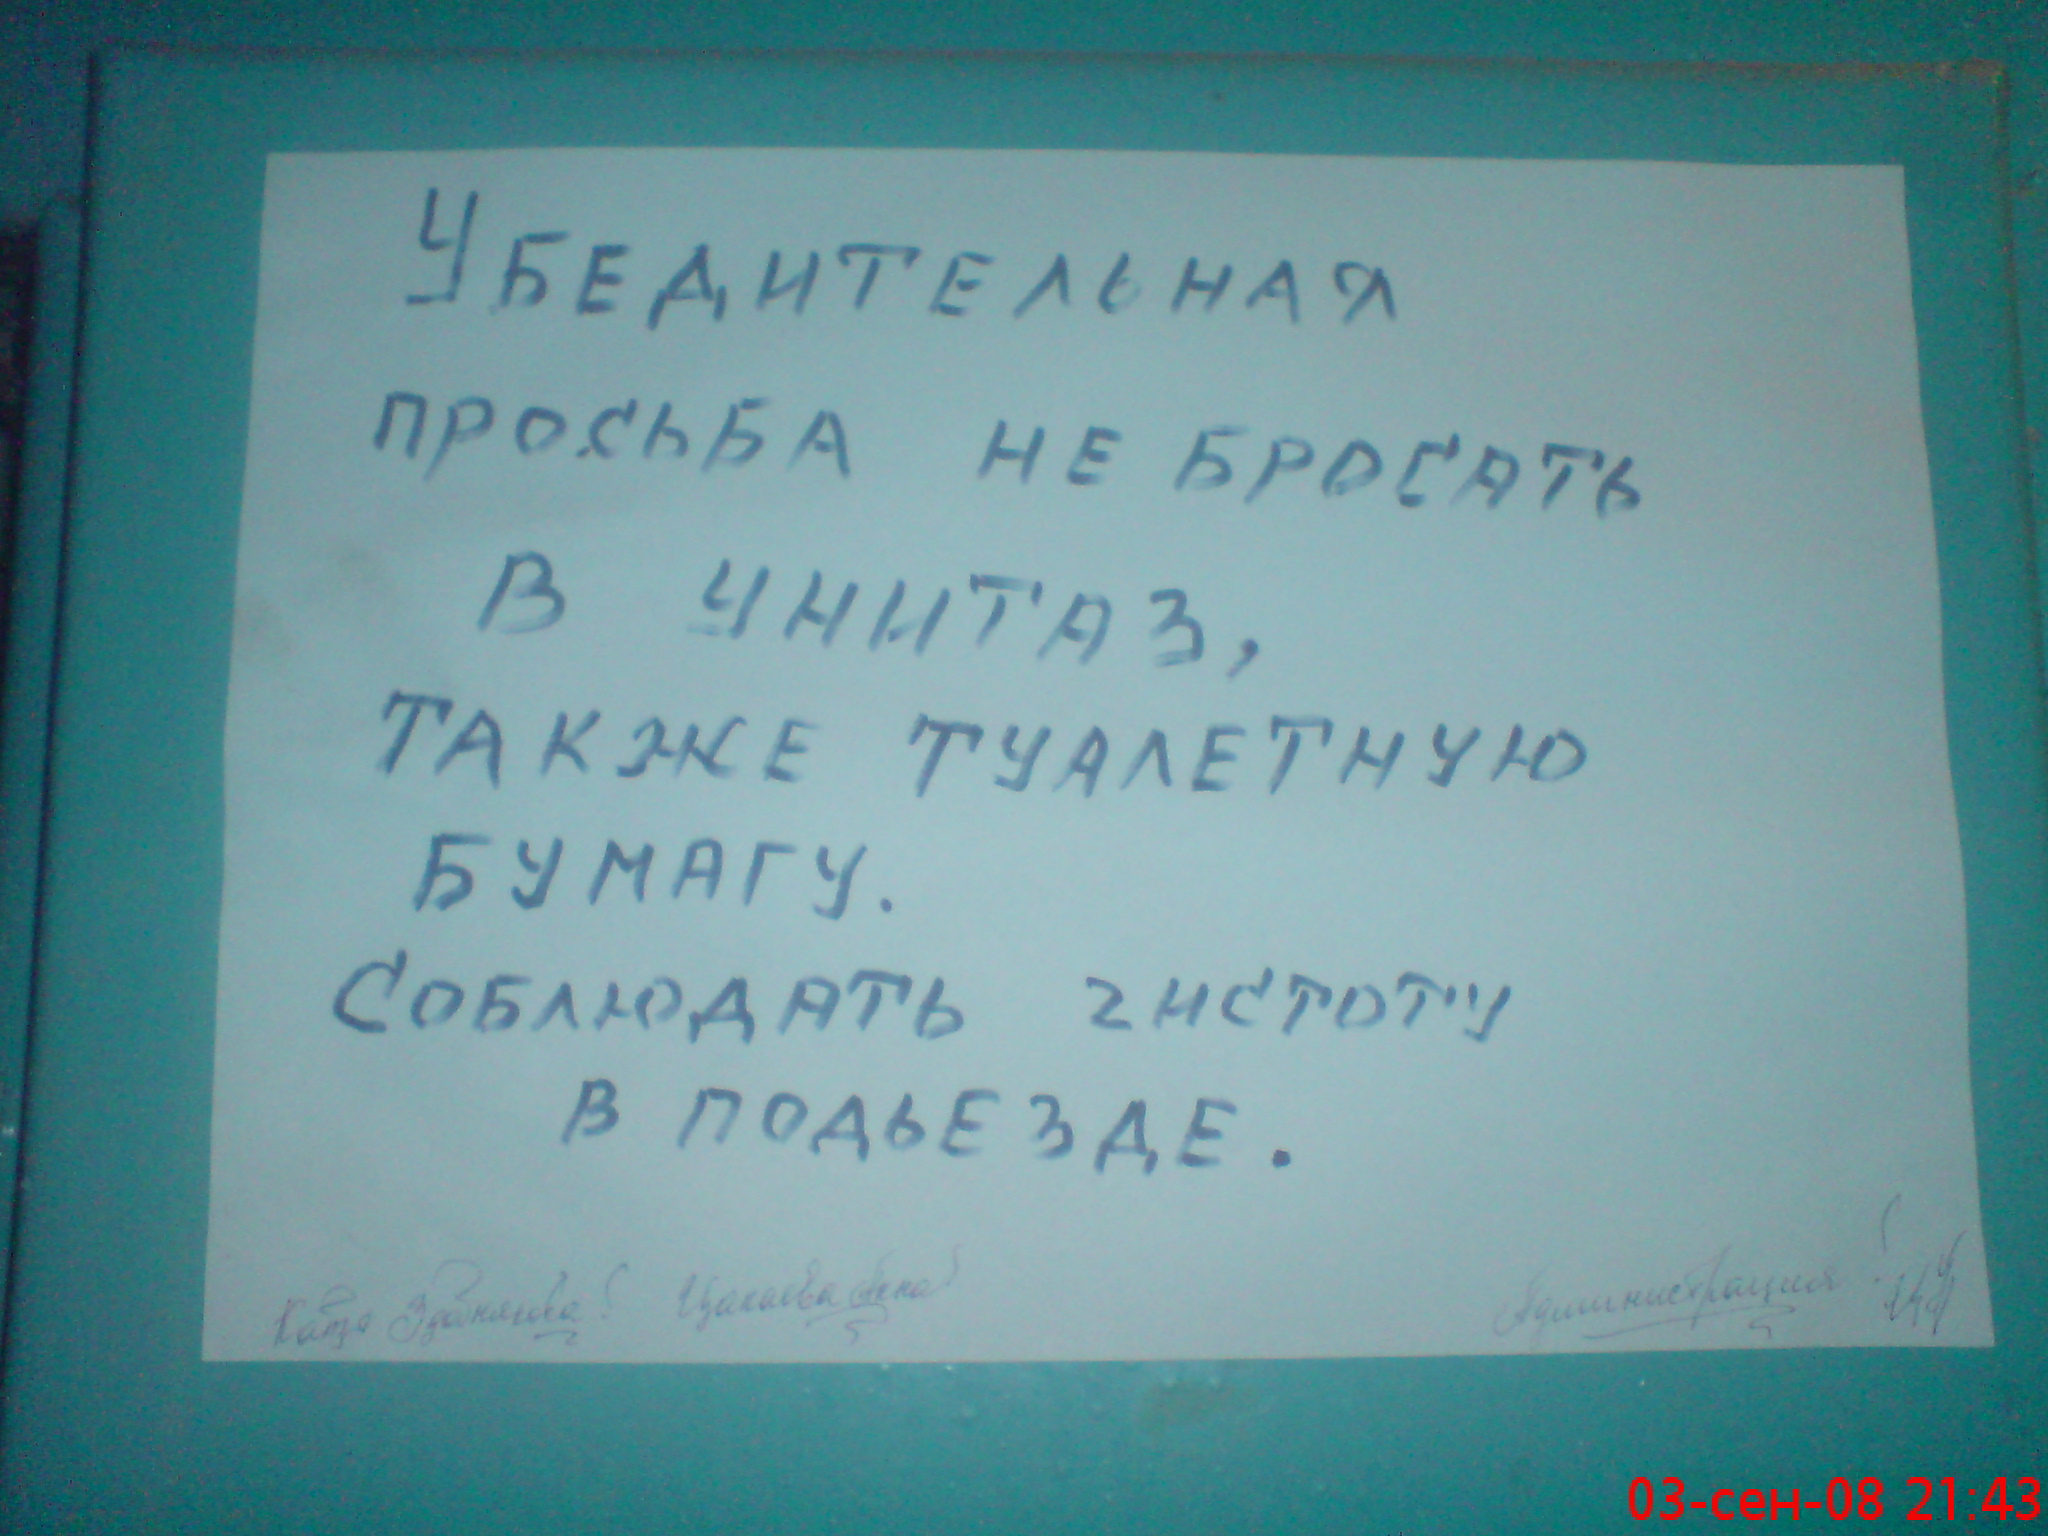 УБЕДИТЕЛЬНАЯ
ПРОСЬБА НЕ БРОСАТЬ
В УНИТАЗ,
ТАКЖЕ ТУАЛЕТНУЮ
БУМАГУ.
СОБЛЮДАТЬ ЧИСТОТУ
В ПОДЬЕЗДЕ.
Катя
Администрация!
03-сен-08 21:43